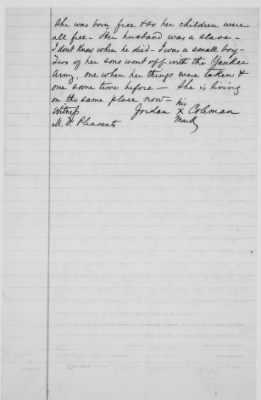 She was born free & so her children were
all free - Her husband was a slave -
I don't know when he died - I was a small boy -
Two of her sons went off with the Yankee
Army, one when her things were taken &
one some time before - She is living
on the same place now - his
Witness Jordan X Coleman
M. F. Pleasants mark